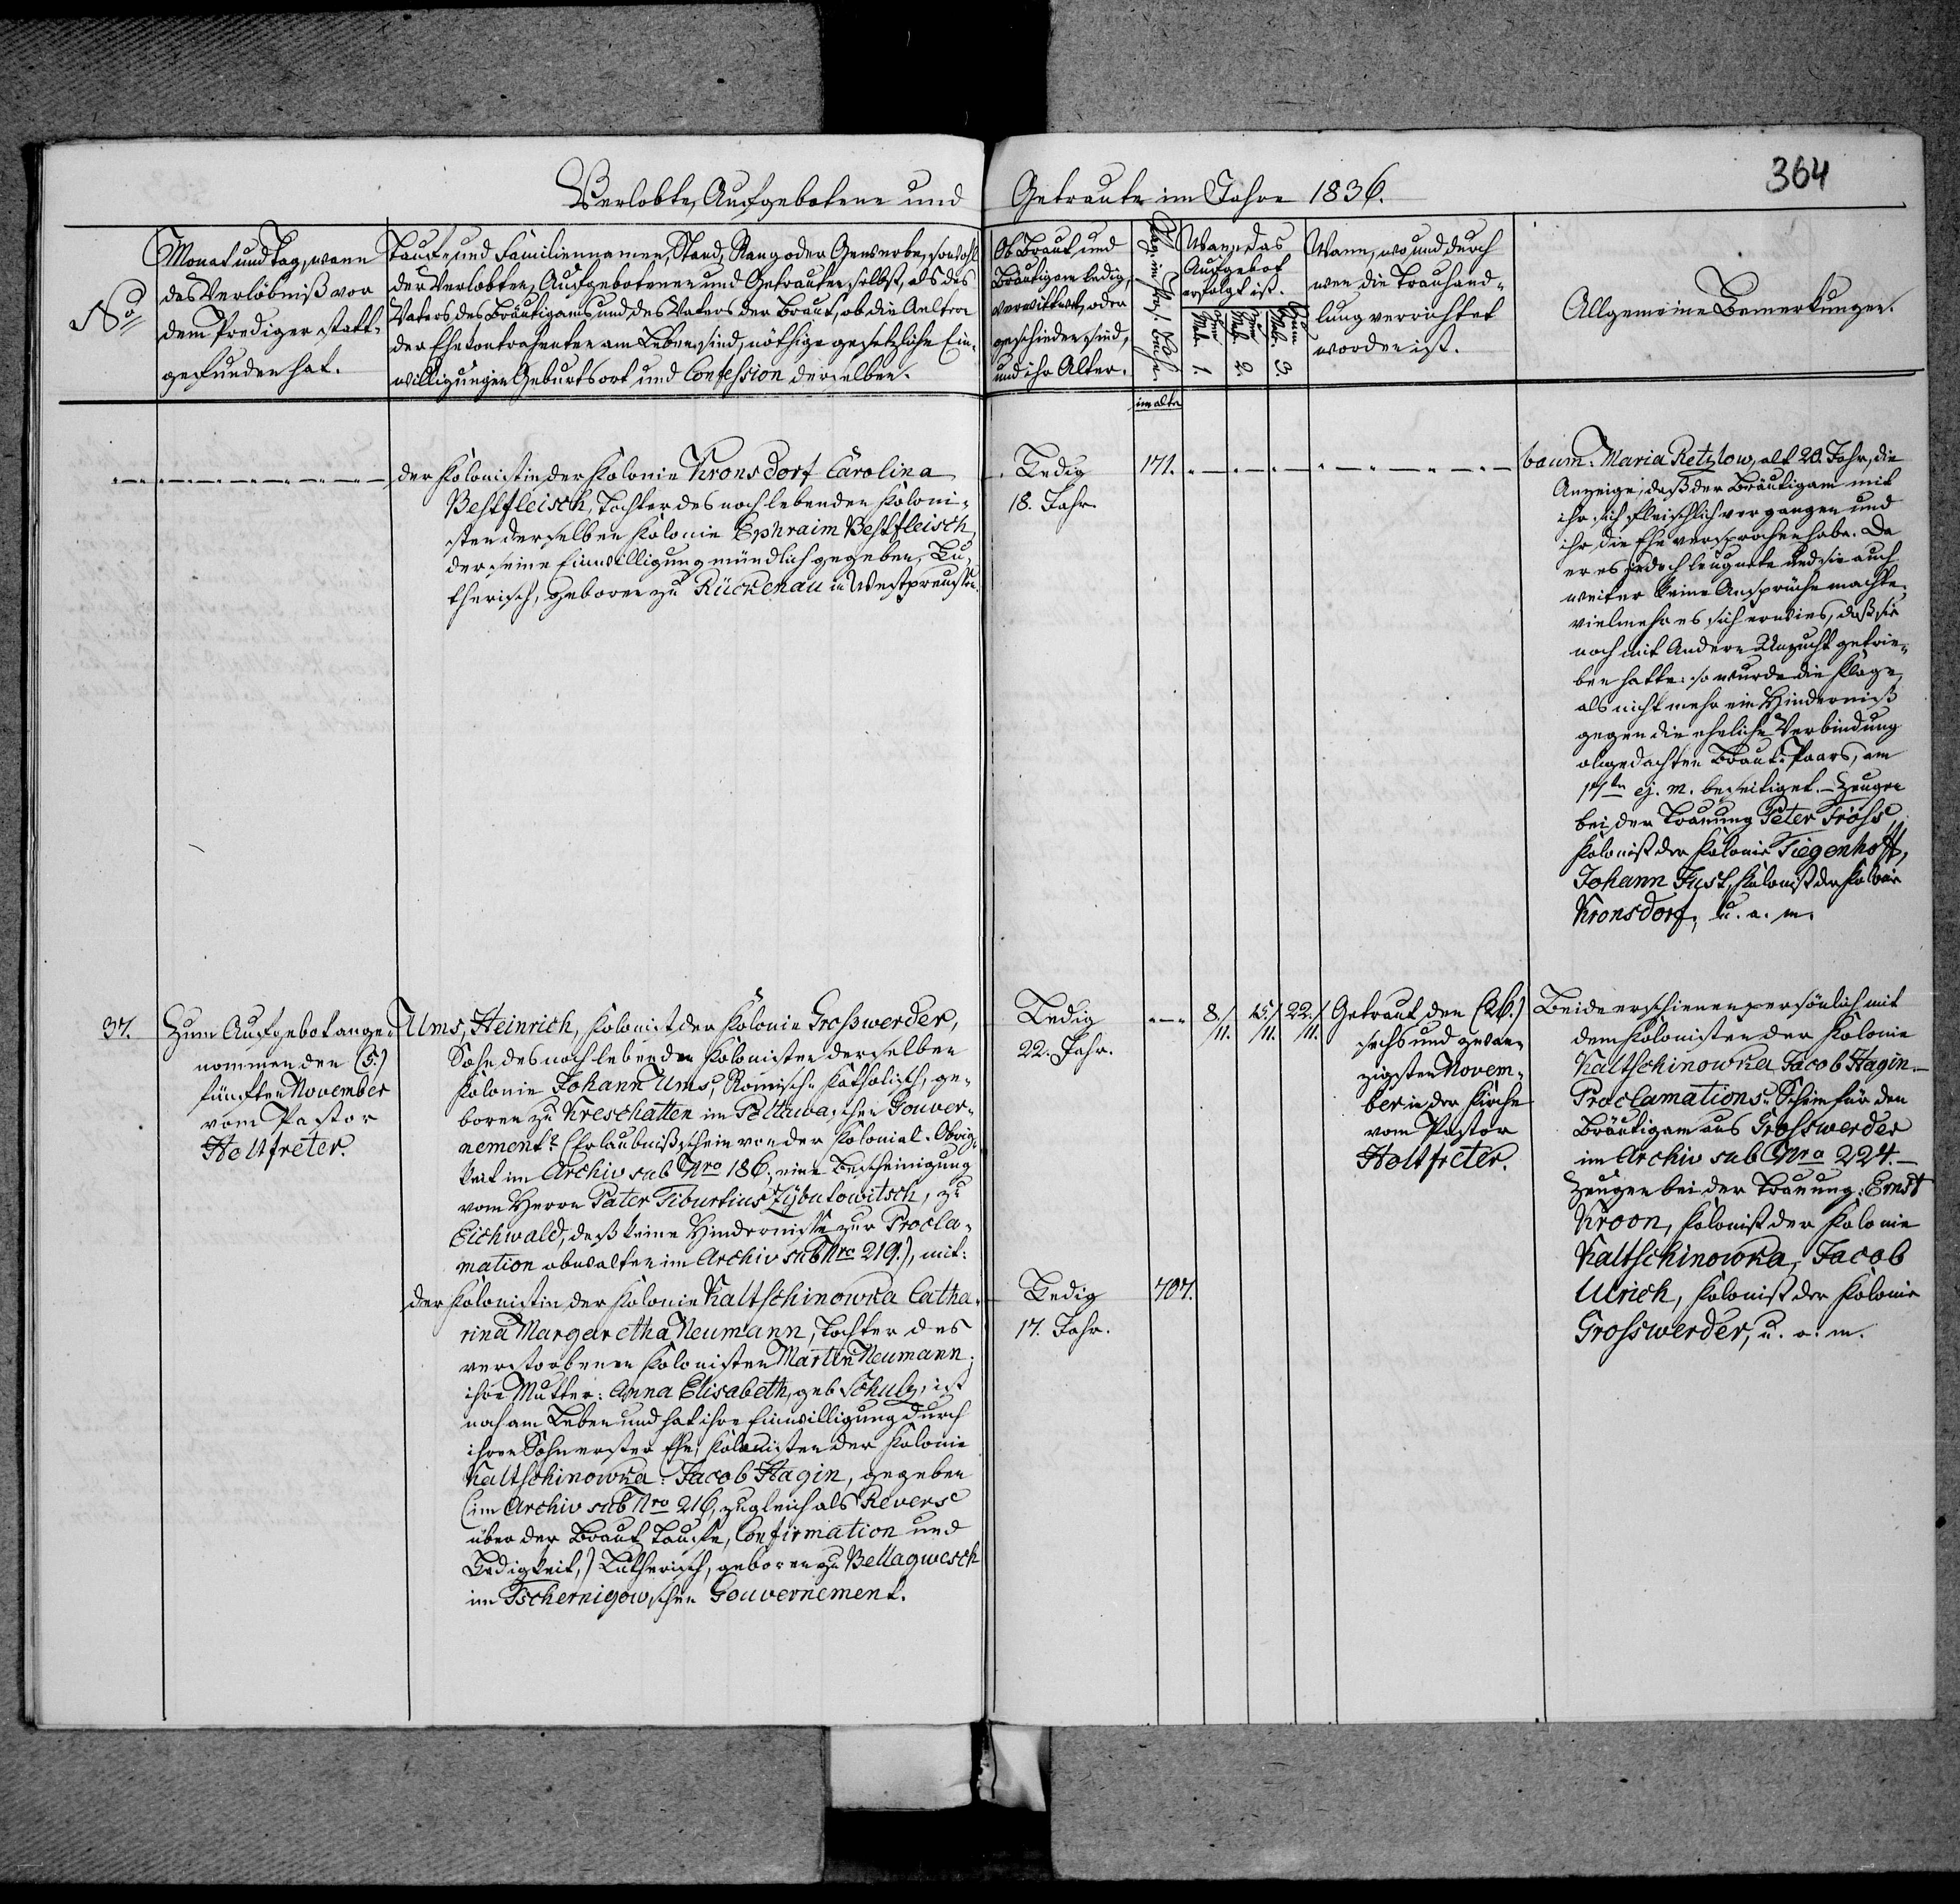 364
Verlobte, Aufgebotene und Getraute im Jahre 1836.
No
Monat und Tag, wann
das Verlöbniß vor
dem Prediger statt-
gefunden hat.
Tauf- und Familiennamen, Stand, Rang oder Gewerbe, sowohl
der Verlobten, Aufgebotenen und Getrauten selbst, als des
Vaters des Bräutigams und des Vaters der Braut, ob die Aeltern
der Ehecontrahenten am Leben sind, nöthige gesetzliche Ein-
willigungen Geburtsort und Confession derselben.
Ob Braut und
Bräutigam ledig,
verwittwet, oder
geschieden sind,
und ihr Alter.
im alten
Wann das
Aufgebot
erfolgt ist.
Zum Mal. 1.
Zum Mal. 2.
Zum Mal. 3.
Wann, wo und durch
wen die Trauhand-
lung verrichtet
worden ist.
Allgemeine Bemerkungen.
der Kolonistin der Kolonie Kronsdorf Carolina
Bestfleisch, Tochter des noch lebenden Koloni-
sten derselben Kolonie Ephraim Bestfleisch,
der seine Einwilligung mündlich gegeben, Lu-
therisch, geboren zu Rückenau in Westpreußen.
Ledig
18. Jahr.
171.
baum: Maria Retzlow, alt 20. Jahr, die
Anzeige, daß der Bräutigam mit
ihr sich fleischlich vergangen und
ihr die Ehe versprochen habe. Da
er es jedoch leugnete und sie auch
weiter keine Ansprüche machte,
vielmehr es sich erwies, daß sie
noch mit Andern Unzucht getrie-
ben hatte: so wurde die Klage,
als nicht mehr ein Hinderniß
gegen die eheliche Verbindung
obgedachten Braut-Paars, am
ej. m. beseitiget. – Zeugen
bei der Trauung Peter Fröse
Kolonist der Kolonie Tiegenhoff,
Johann Just, Kolonist der Kolonie
Kronsdorf, u. a. m.
37.
Zum Aufgebot ange-
nommen den (5.)
fünften November
vom Pastor
Holtfreter.
Ums, Heinrich, Kolonist der Kolonie Grosswerder,
Sohn des noch lebenden Kolonisten derselben
Kolonie Johann Ums, Römisch-Katholisch, ge-
boren zu Kreschatten im Poltawaschen Gouver-
nement (Erlaubnißschein von der Kolonial-Obrig-
keit im Archiv sub Nro 186, eine Bescheinigung
vom Herrn Pater Tiburtius Zybulowitsch, zu
Eichwald, daß keine Hindernisse zur Procla-
mation obwalten im Archiv sub Nro 219.), mit:
der Kolonistin der Kolonie Kaltschinowka Catha-
rina Margaretha Neumann, Tochter des
verstorbenen Kolonisten Martin Neumann;
ihre Mutter: Anna Elisabeth, geb Schulz, ist
noch am Leben und hat ihre Einwilligung durch
ihren Sohn erster Ehe, Kolonisten der Kolonie
Kaltschinowka: Jacob Hagin, gegeben
(im Archiv sub Nro 216, zugleich als Reverse
über der Braut Taufe, Confirmation und
Ledigkeit,) Lutherisch, geboren zu Bellagwesch
im Tschernigowschen Gouvernement.
Ledig
22. Jahr.
8./11.
15./11.
22./11.
Ledig
17. Jahr.
707.
Getraut den (26.)
sechs und zwan-
zigsten Novem-
ber in der Kirche
vom Pastor
Holtfreter.
Beide erschienen persönlich mit
dem Kolonisten der Kolonie
Kaltschinowka Jacob Hagin. –
Proclamations-Schein für den
Bräutigam aus Grosswerder
im Archiv sub Nro 224. –
Zeugen bei der Trauung: Ernst
Kroon, Kolonist der Kolonie
Kaltschinowka, Jacob
Ulrich, Kolonist der Kolonie
Grosswerder, u. a. m.